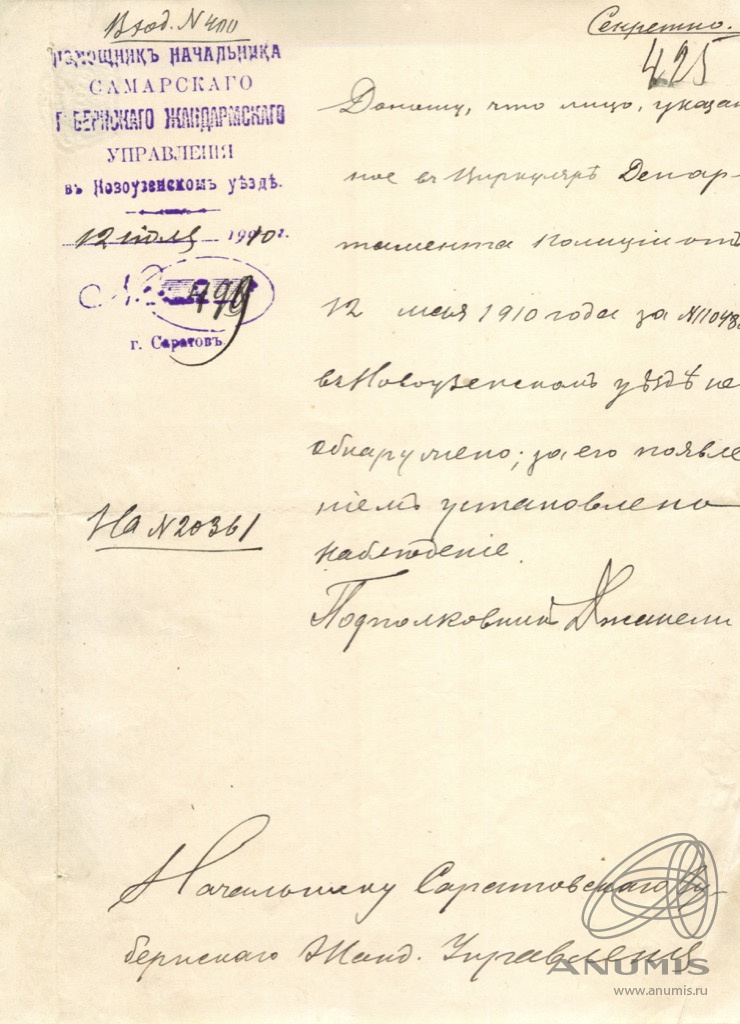 Вход. N 400
Секретно.
425
ПОМОЩНИКЪ НАЧАЛЬНИКА
САМАРСКАГО
ГУБЕРНСКАГО ЖАНДАРМСКАГО
УПРАВЛЕНІЯ
въ Новоузенскомъ уѣздѣ.
12 июля 1910 г.
№ 499
г. Саратовъ.
Доношу, что лицо, указан
ное въ циркулярѣ Депар-
тамента Полиціи отъ
12 мая 1910 года за N11048
въ Новоузенскомъ уѣздѣ не
обнаружено; за его появле
ніемъ установлено
наблюденіе.
На N 20361
Подполковникъ
Начальнику Саратовскаго Гу-
бернскаго Жанд. Управленія
ANUMIS
www.anumis.ru